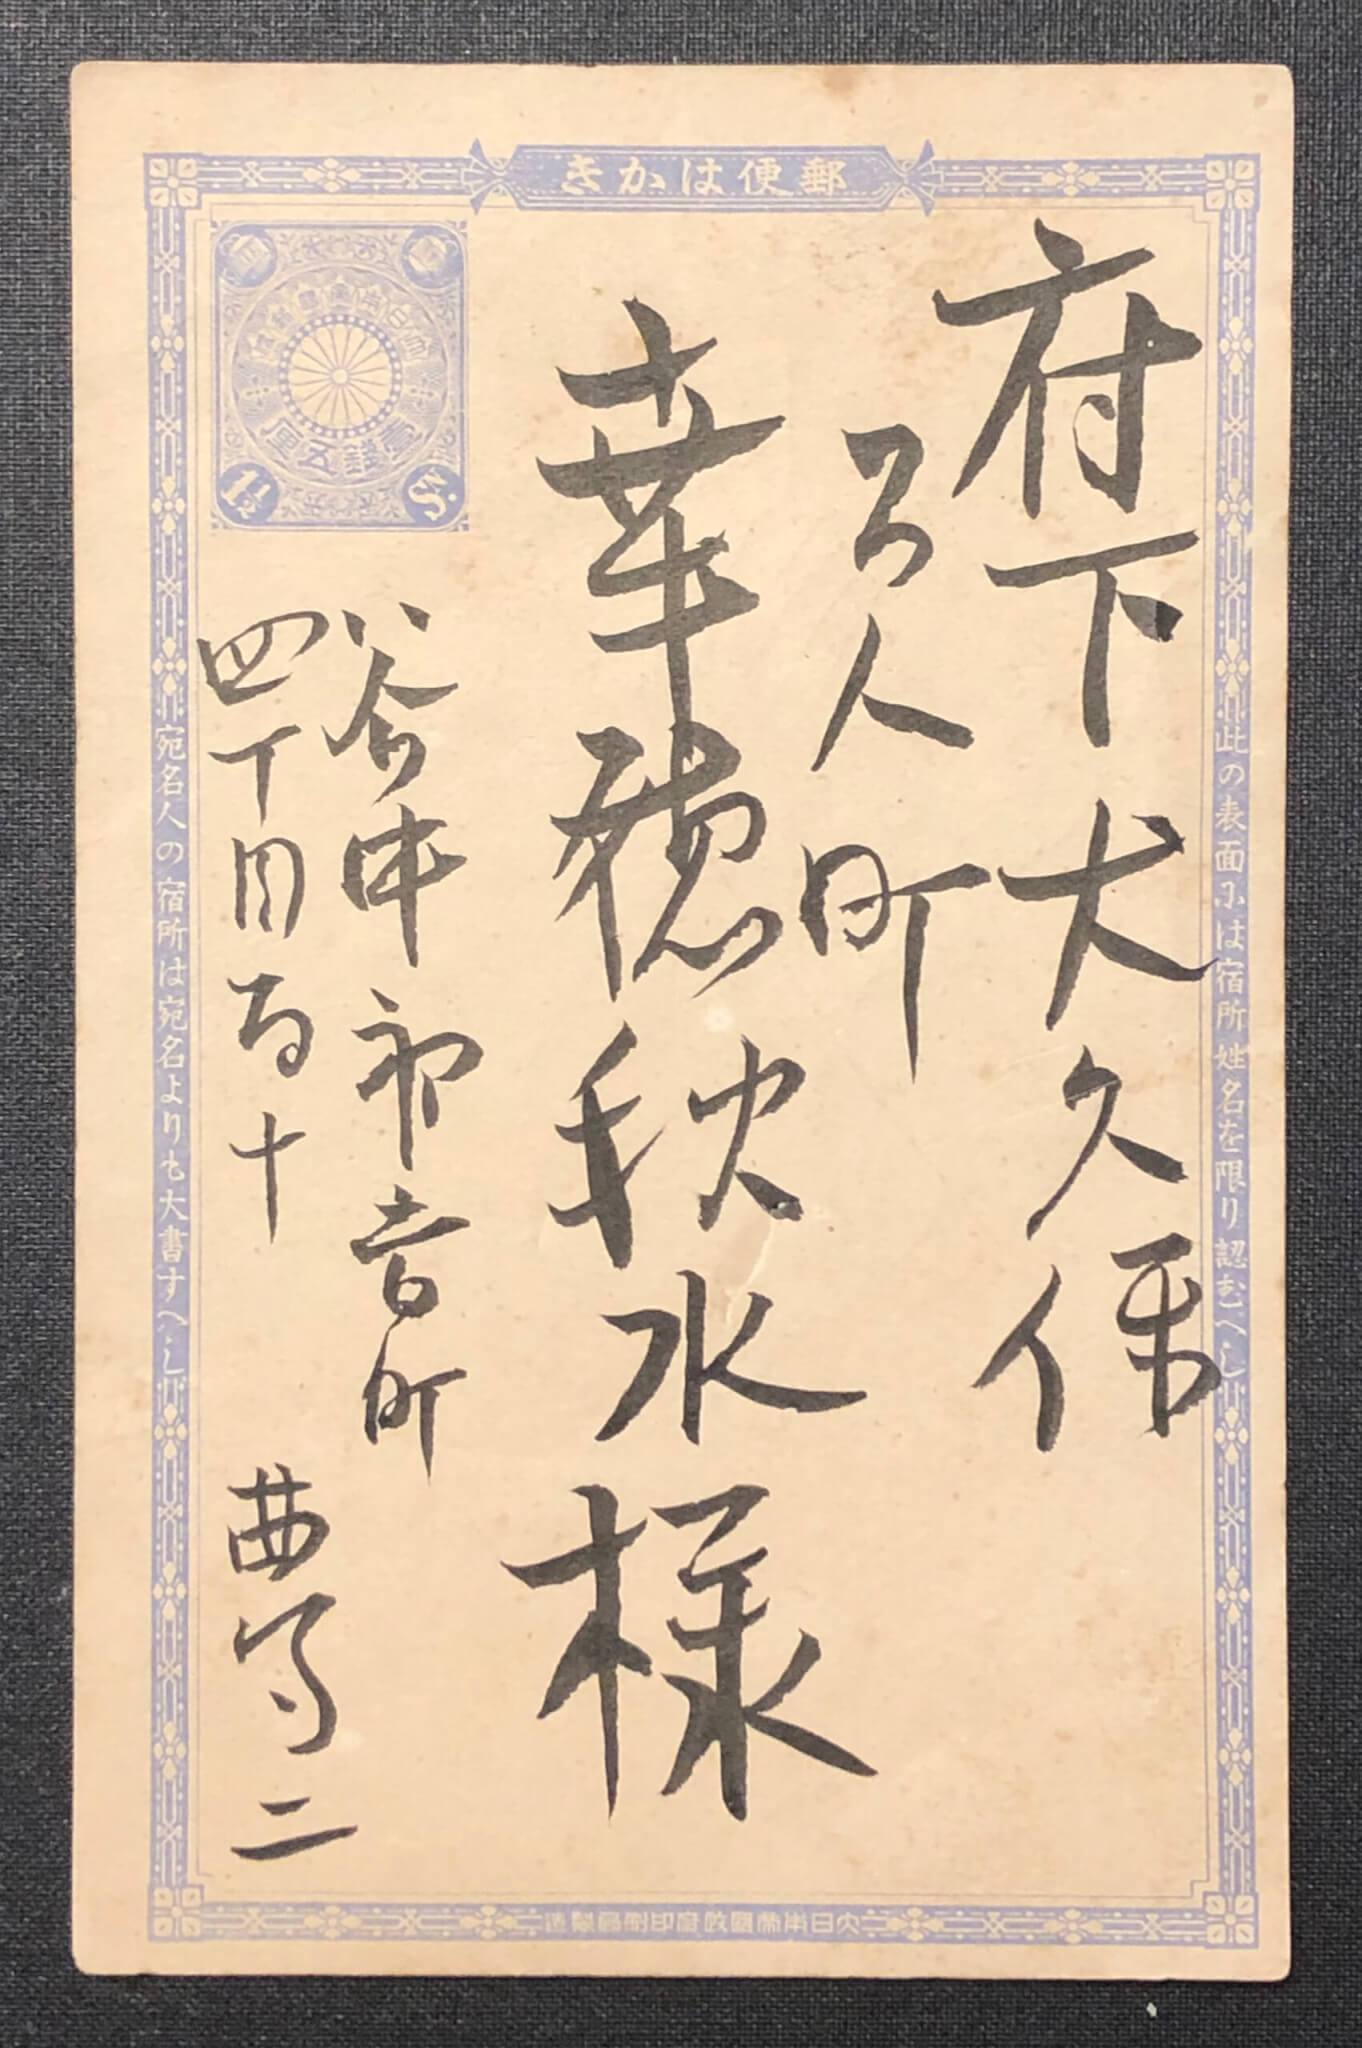 郵便はかき
大日本帝國郵便
壹錢五厘
1½ SN.
此の表面には宿所姓名を限り認むへし
府下大久保
百人町
華穂秋水様
谷中初音町
四丁目百十
二
宛名人の宿所は宛名よりも大書すへし
大日本帝國政府印刷局製造